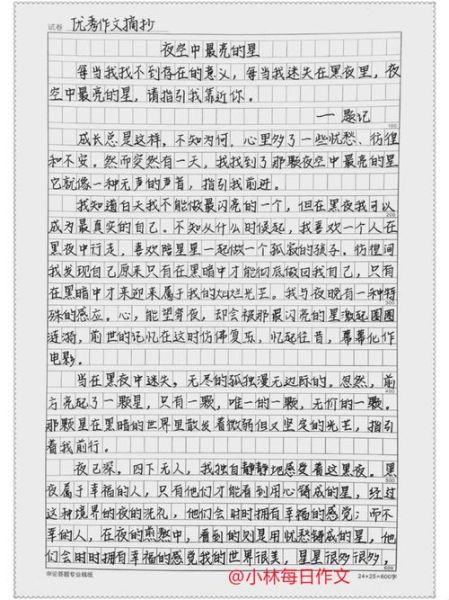 试卷 优秀作文摘抄
夜空中最亮的星
每当我找不到存在的意义，每当我迷失在黑夜里，夜
空中最亮的星，请指引我靠近你。
——题记
成长总是这样，不知为何，心里多了一些忧愁、彷徨
和不安。然而突然有一天，我找到了那颗夜空中最亮的星
它就像一种无声的声音，指引我前进。
我知道白天我不能做最闪亮的一个，但在黑夜我可以
成为最真实的自己。不知从什么时候起，我喜欢一个人在
黑夜中行走，喜欢陪星星一起做一个孤寂的孩子。彷徨间
我发现自己原来只有在黑暗中才能彻底做回我自己，只有
在黑暗中才来迎来属于我的灿烂光芒。我与夜晚有一种特
殊的感应。心，能望穿夜，却会被那最闪亮的星激起圈圈
涟漪，前世的记忆在这时仿佛复乐，忆起往昔，幕幕化作
电影。
当在黑夜中迷失，无尽的孤独漫无边际的。忽然，前
方亮起了一颗星，只有一颗，唯一的一颗，无价的一颗。
那颗星在黑暗的世界里散发着微弱但又坚定的光芒，指引
着我前行。
夜已深，四下无人，我独自静静地感受着这黑夜。黑
夜属于幸福的人，只有他们才能看到用心铸成的星，经过
这种境界的夜的洗礼，他们会时时拥有幸福的感觉；而不
幸的人，在夜的煎熬中，看到的则是用忧愁铸成的星，他
们会时时拥有幸福的感觉我的世界很美，星星很多很多，
100
200
300
400
500
600
申论答题专业稿纸
24×25=600字
@小林每日作文